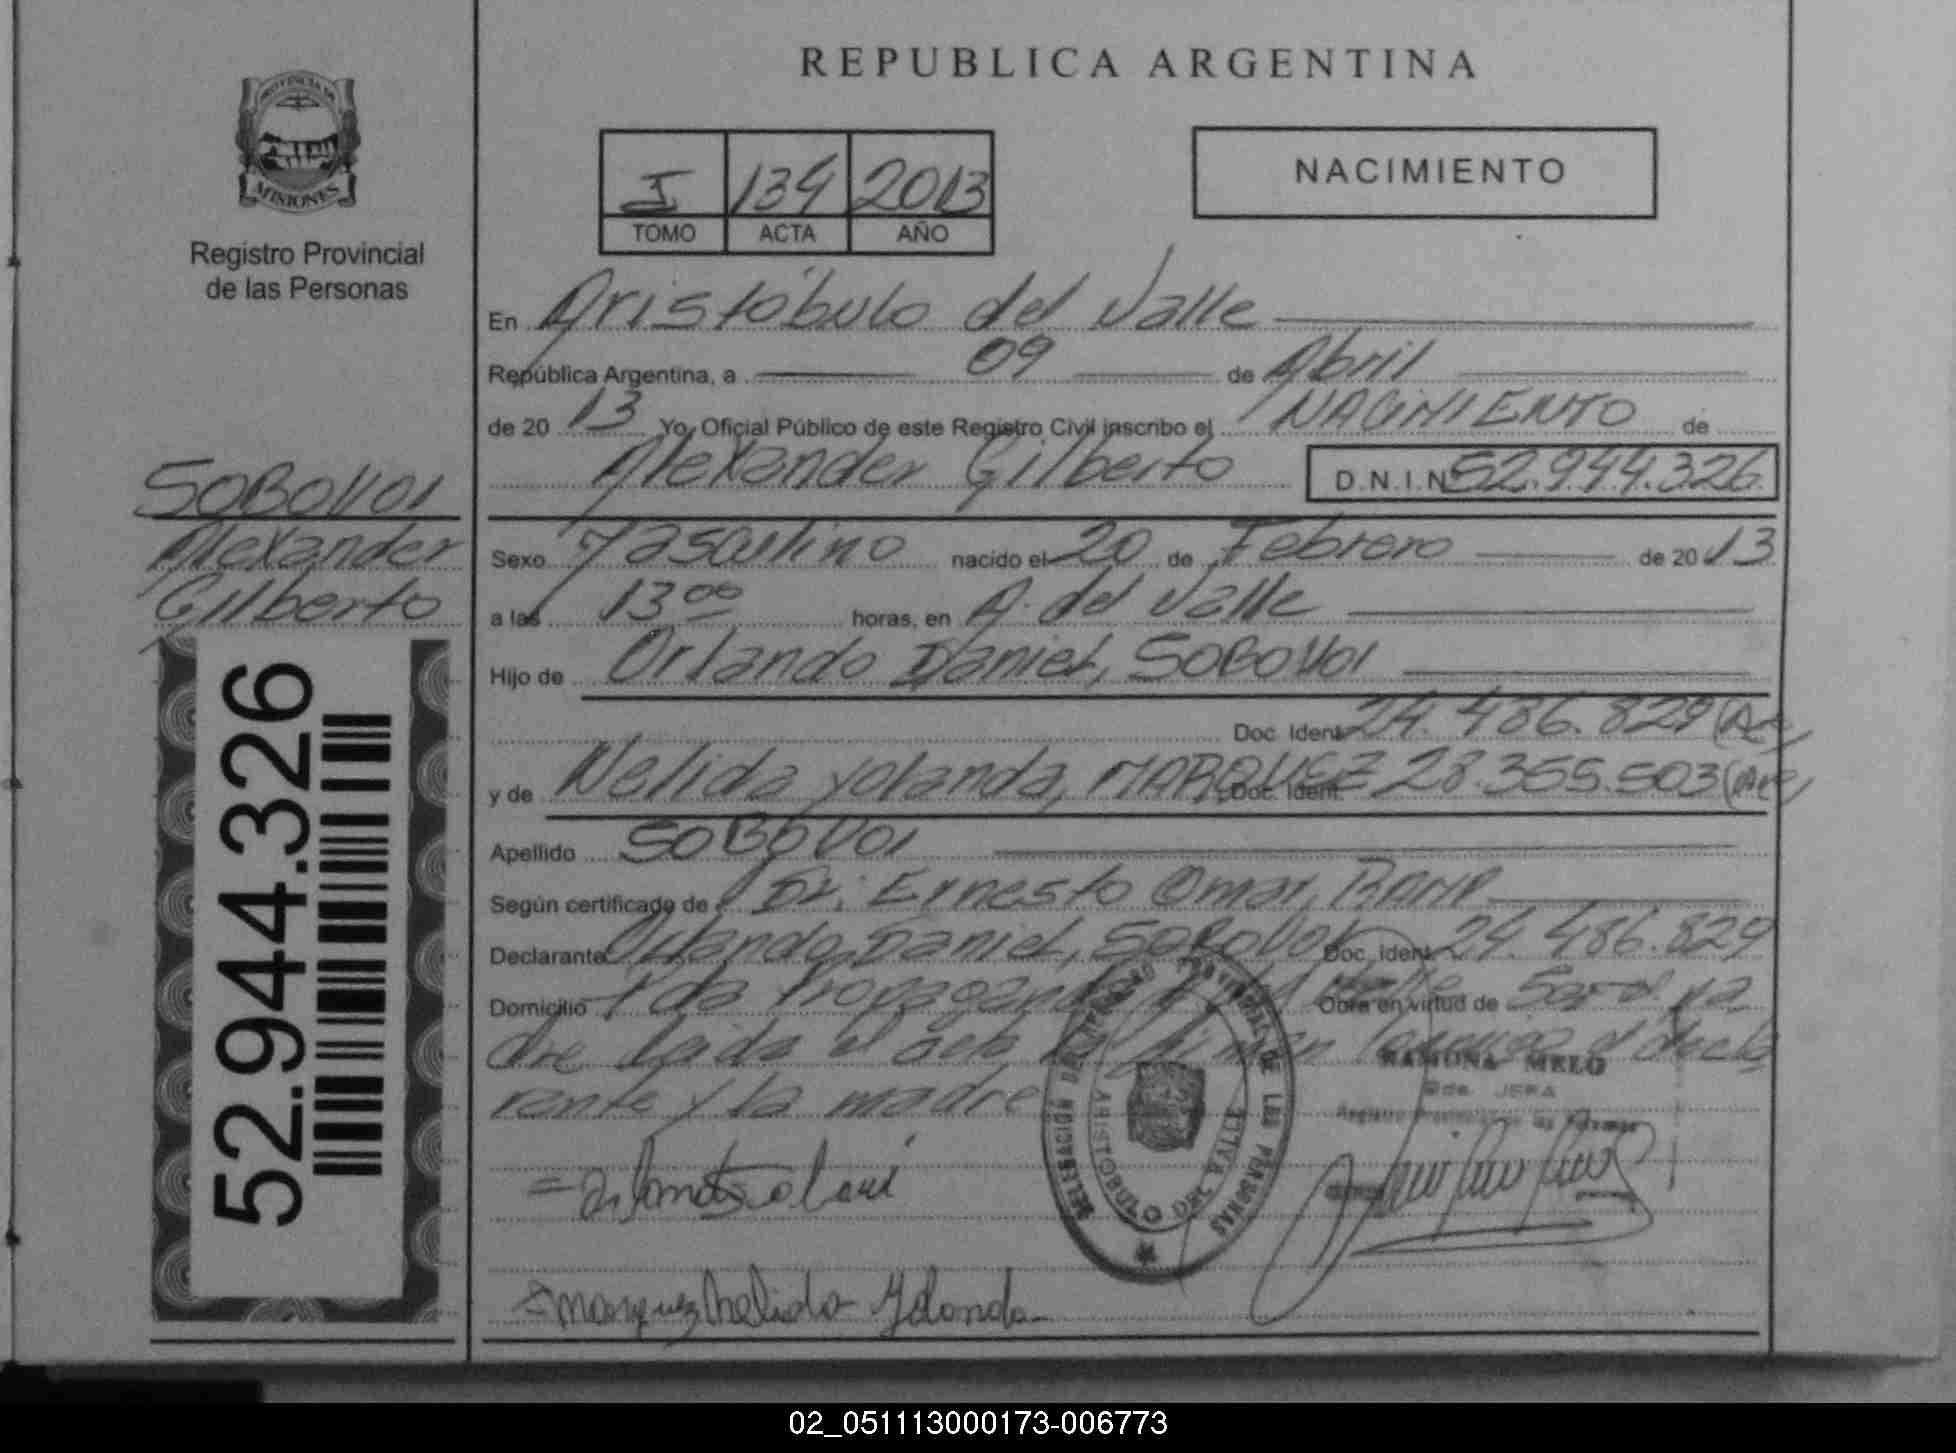 PROVINCIA DE
MISIONES
Registro Provincial
de las Personas
SOBOVOI
Alexander
Gilberto
52.944.326
REPUBLICA ARGENTINA
I 134 2013
TOMO ACTA AÑO
NACIMIENTO
En Aristóbulo del Valle
República Argentina, a 09 de Abril
de 20 13 Yo, Oficial Público de este Registro Civil inscribo el NACIMIENTO de
Alexander Gilberto D.N.I.Nº 52.944.326
Sexo Masculino nacido el 20 de Febrero de 20 13
a las 13 00 horas, en A. del Valle
Hijo de Orlando Daniel, SOBOVOI
Doc. Ident. 24.486.829 (Ar
y de Nelida Yolanda, MARQUEZ Doc. Ident. 28.355.503 (Ar
Apellido SOBOVOI
Según certificado de Dr. Ernesto Omar,
Declarante Orlando Daniel, SOBOVOI Doc. Ident. 24.486.829
Domicilio Propaganda Obra en virtud de
Leida el acta
rante y la madre
DELEGACION DE REGISTRO PROVINCIAL DE LAS PERSONAS
ARISTOBULO DEL VALLE
RAMONA MELO
JEFA
Registro Provincial de las Personas
Marquez Nelida Yolanda
02_051113000173-006773